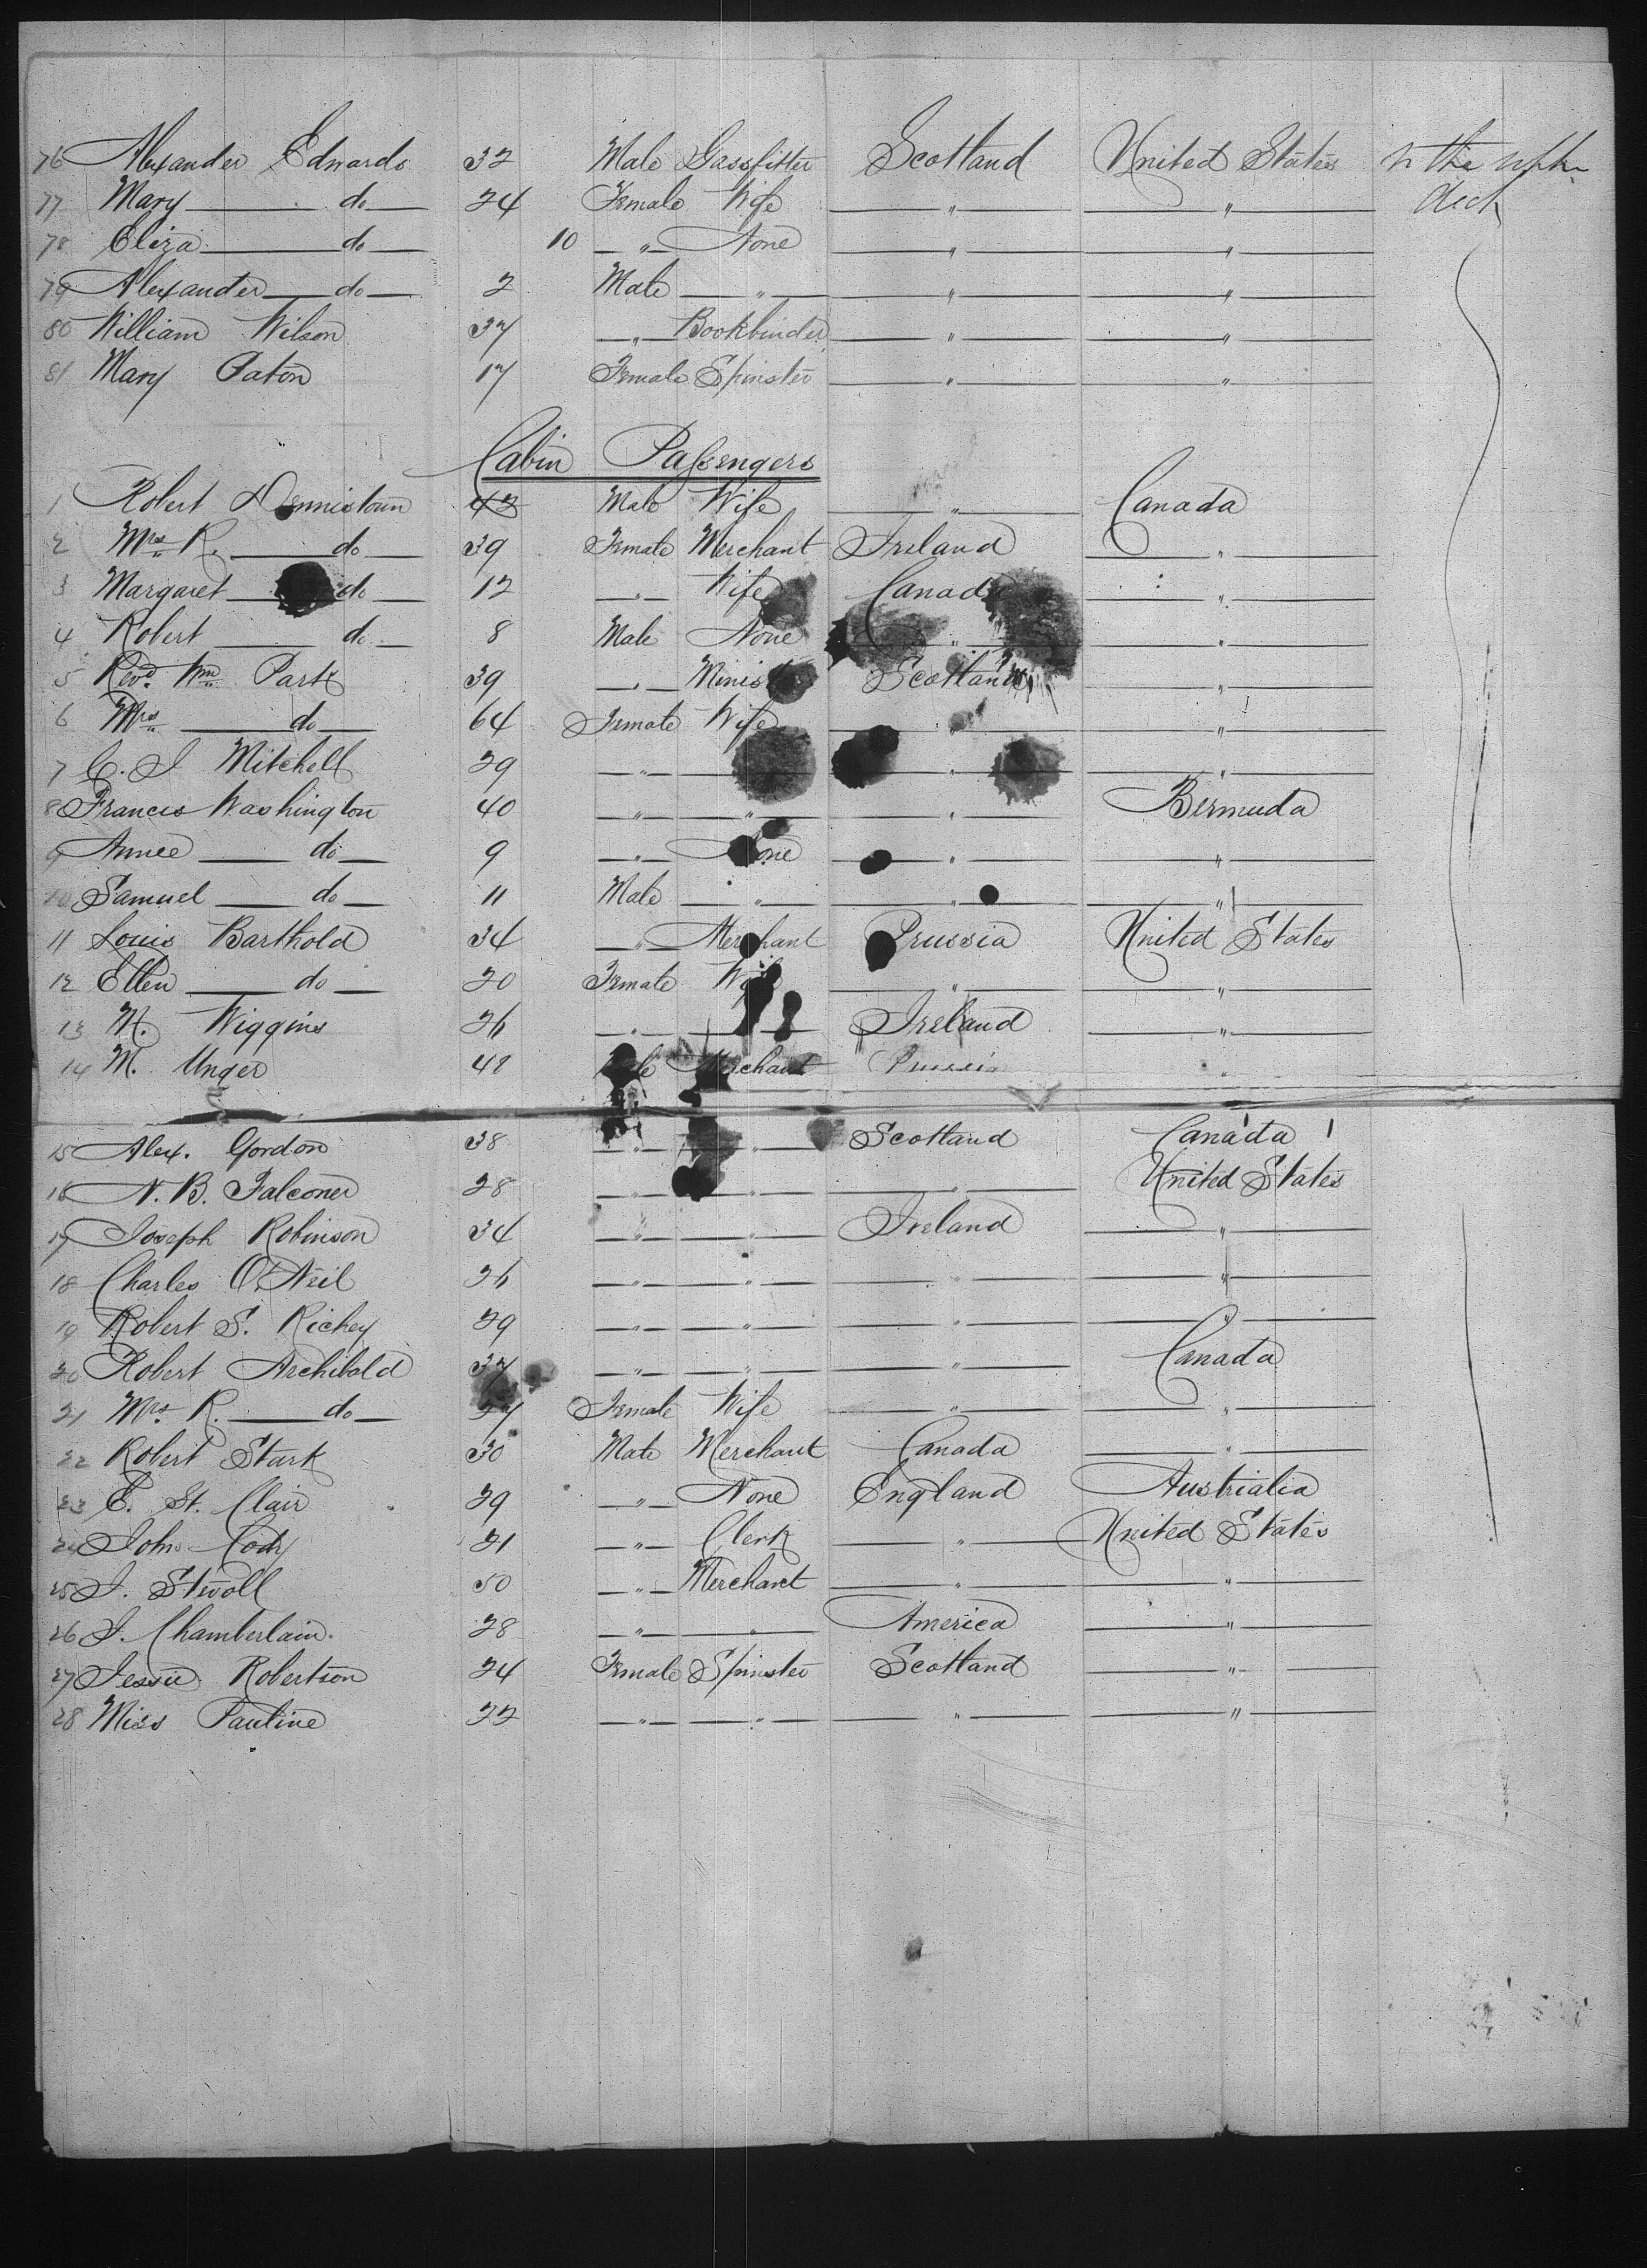 76 Alexander Edwards 32 Male Gassfitter Scotland United States in the upper
77 Mary — do — 24 Female Wife — " — — " — deck
78 Eliza — do — 10 — " — None — " — — " —
79 Alexander — do — 2 Male — " — — " — — " —
80 William Wilson 37 — " — Bookbinder — " — — " —
81 Mary Paton 17 Female Spinster — " — — " —
Cabin Passengers
1 Robert Dennistoun 42 Male Wife — " — Canada
2 Mrs R. — do — 39 Female Merchant Ireland — " —
3 Margaret — do — 12 — " — Wife Canada — " —
4 Robert — do — 8 Male None — " — — " —
5 Revd. Wm Park 39 — " — Minister Scotland — " —
6 Mrs — do — 64 Female Wife — " — — " —
7 C. J Mitchell 29 — " — — " — — " —
8 Francis Washington 40 — " — — " — — " — Bermuda
9 Annee — do — 9 — " — None — " — — " —
10 Samuel — do — 11 Male — " — — " — — " —
11 Louis Barthold 34 — " — Merchant Prussia United States
12 Ellen — do — 20 Female Wife — " — — " —
13 M. Wiggins 26 — " — Ireland — " —
14 M. Unger 48 Male Merchant Prussia "
15 Alex. Gordon 38 — " — — " — Scotland Canada
16 N. B. Falconer 28 — " — — " — — " — United States
17 Joseph Robinson 34 — " — — " — Ireland — " —
18 Charles O'Neil 26 — " — — " — — " — — " —
19 Robert S. Richey 29 — " — — " — — " — — " —
20 Robert Archibald 37 — " — — " — — " — Canada
21 Mrs R. — do — 27 Female Wife — " — — " —
22 Robert Stark 30 Male Merchant Canada — " —
23 E. St. Clair 29 — " — None England Austrialia
24 John Cody 21 — " — Clerk — " — United States
25 J. Stwoll 50 — " — Merchant — " — — " —
26 J. Chamberlain 28 — " — — " — America — " —
27 Jessie Robertson 24 Female Spinster Scotland — " —
28 Miss Pauline 22 — " — — " — — " — — " —